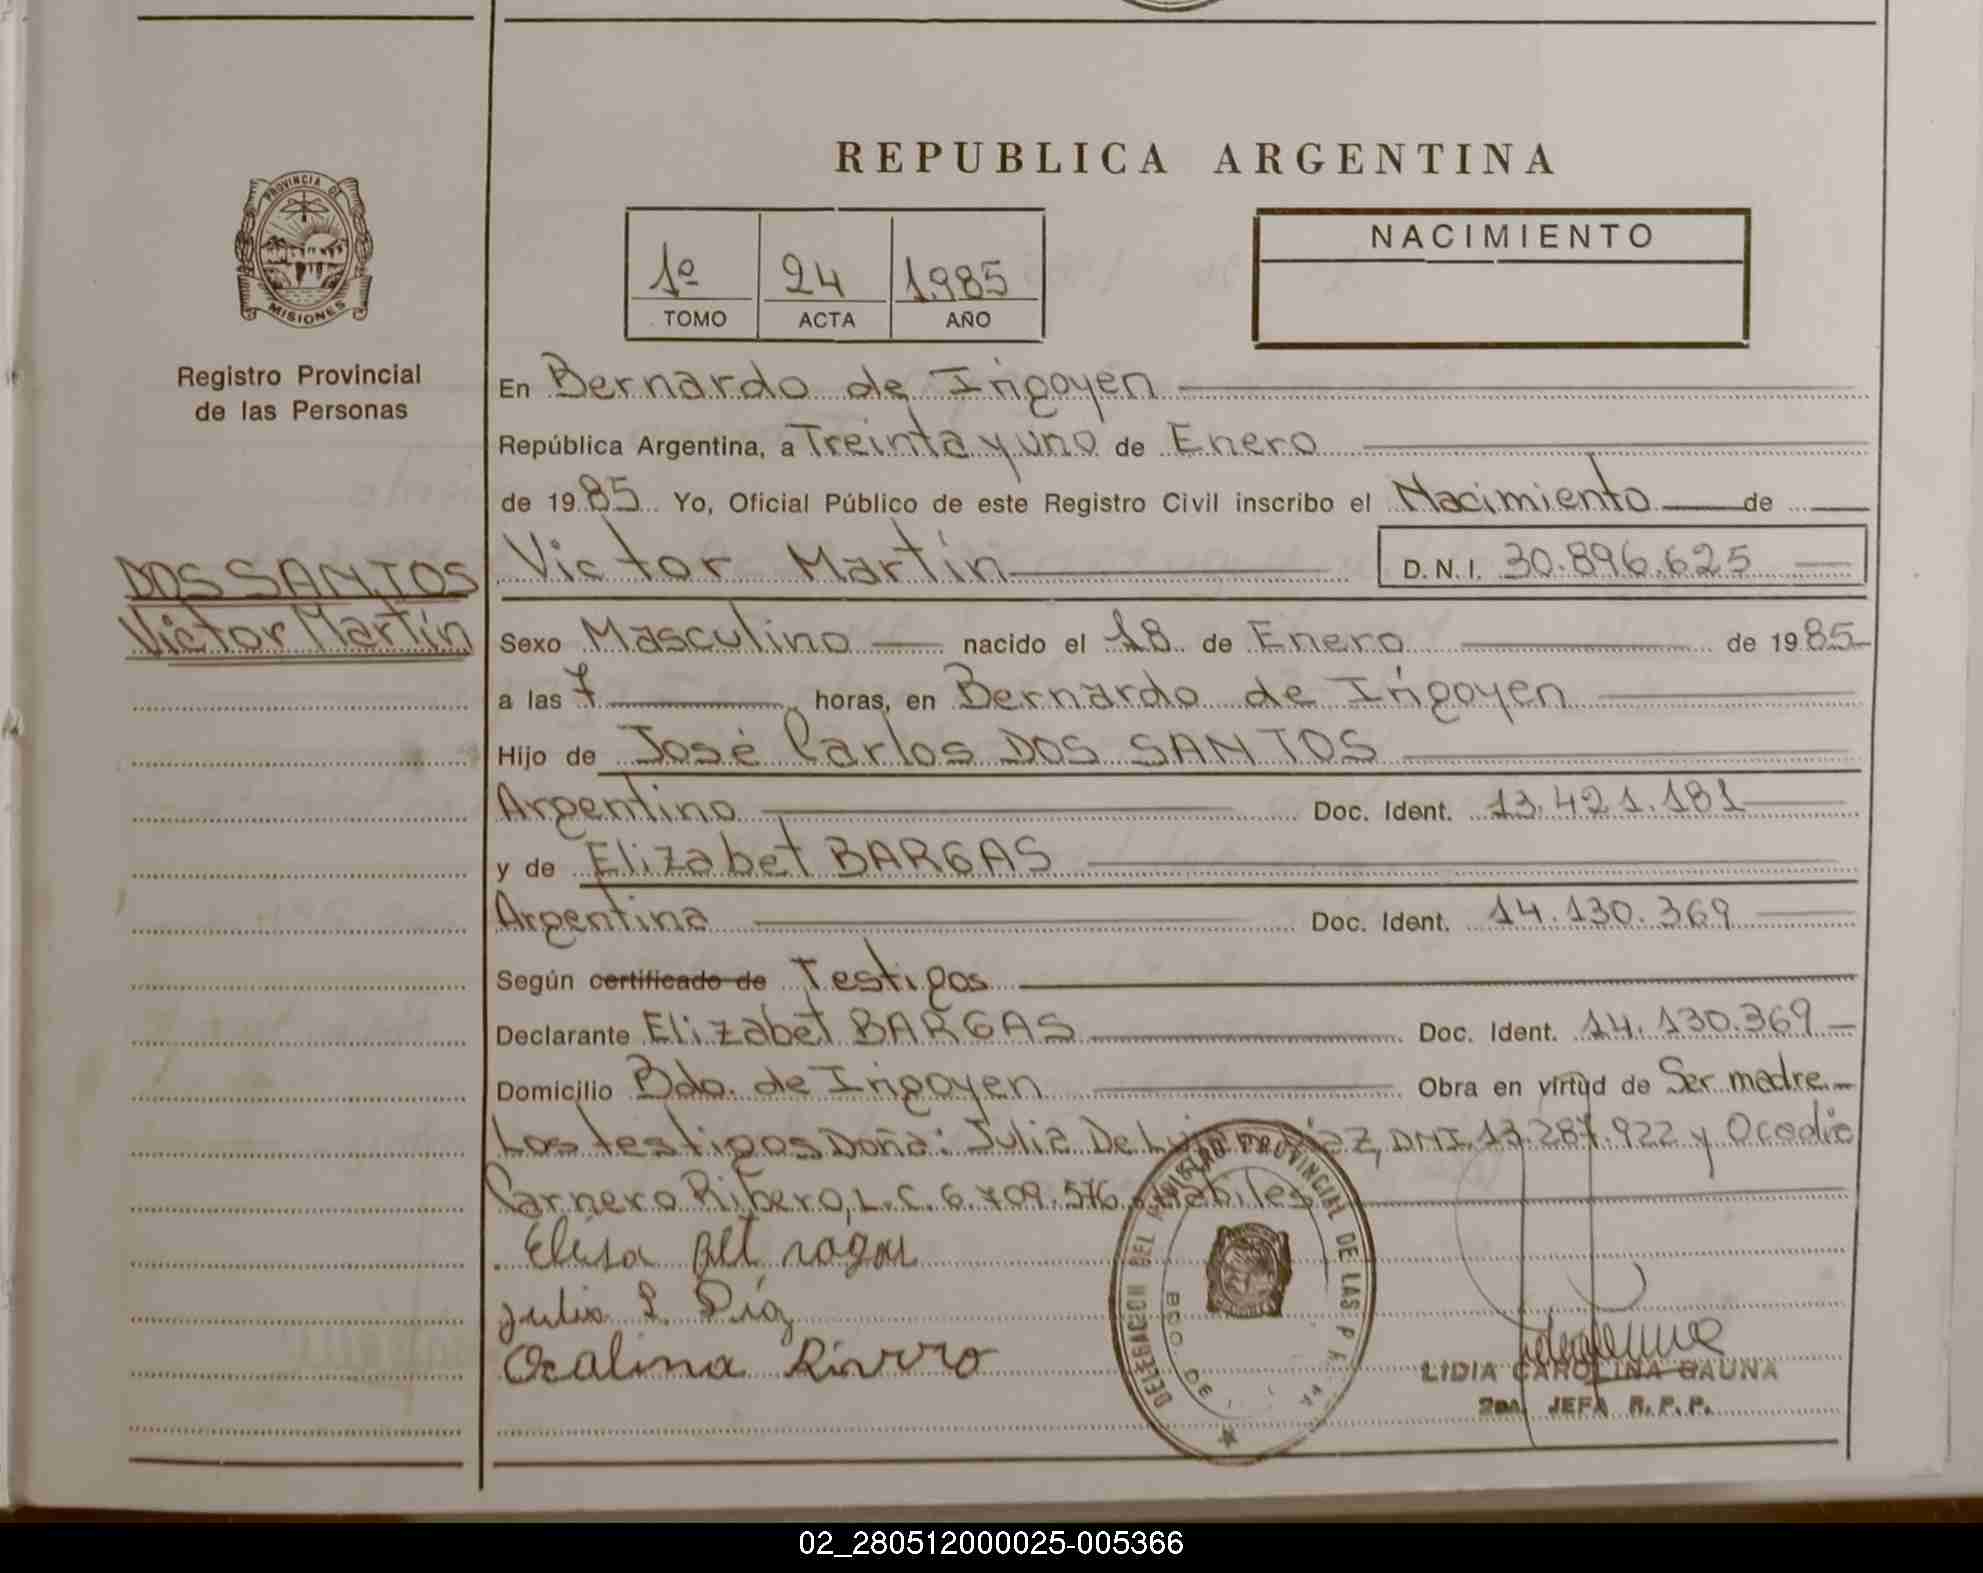 REPUBLICA ARGENTINA
PROVINCIA DE
MISIONES
Registro Provincial
de las Personas
1º 24 1985
TOMO ACTA AÑO
NACIMIENTO
En Bernardo de Irigoyen
República Argentina, a Treinta y uno de Enero
de 1985 Yo, Oficial Público de este Registro Civil inscribo el Nacimiento de
DOS SANTOS
Victor Martín
Victor Martín D.N.I. 30.896.625
Sexo Masculino nacido el 18 de Enero de 1985
a las 7 horas, en Bernardo de Irigoyen
Hijo de José Carlos DOS SANTOS
Argentino Doc. Ident. 13.421.181
y de Elizabet BARGAS
Argentina Doc. Ident. 14.130.369
Según certificado de Testigos
Declarante Elizabet BARGAS Doc. Ident. 14.130.369
Domicilio Bdo. de Irigoyen Obra en virtud de Ser madre
Los testigos Doña: Julia De Díaz, DNI. 13.287.922 y
Carnero Ribero, L.C. 6.709.576. Habiles
Julia Díaz
DELEGACION DEL REGISTRO PROVINCIAL DE LAS
BDO. DE
LIDIA CAROLINA GAUNA
2da. JEFA R.P.P.
02_280512000025-005366